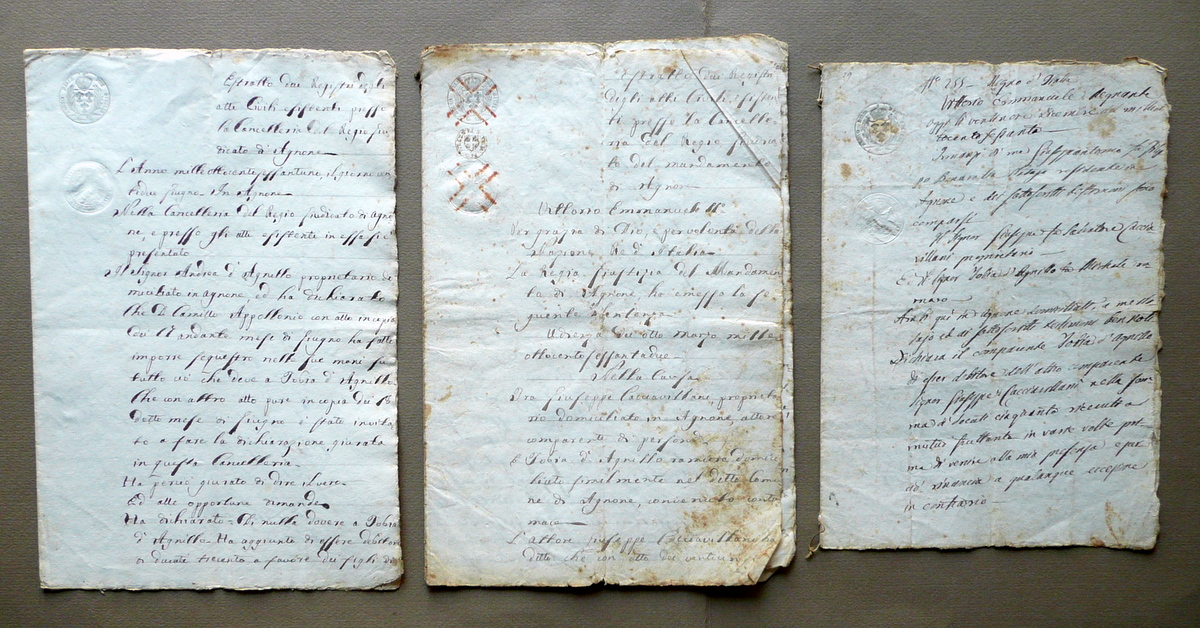 Estratto dai Registri degli
atti Civili esistenti presso
la Cancelleria del Regio Giu
dicato di Agnone
L'Anno milleottocento sessantuno, il giorno ven
tidue Giugno In Agnone
Nella Cancelleria del Regio Giudicato di Agno
ne, e presso gli atti esistenti in essa si è
presentato
Il Signor Andrea d'Agnello proprietario do
miciliato in Agnone, ed ha dichiarato
che D. Camillo Appollonio con atto in copia
andante mese di Giugno ha fatto
imporre sequestro nelle sue mani su
tutto ciò che deve a Tobia d'Agnello
Che con altro atto pure in copia dei
detto mese di Giugno è stato invita
to a fare la dichiarazione giurata
in questa Cancelleria
Ha perciò giurato di dire il vero
Ed alle opportune dimande
Ha dichiarato = Di nulla dovere a Tobia
d'Agnello Ha aggiunto di essere debitore
di ducati trecento a favore dei figli di
Estratto dai Registri
degli atti Civili esisten
ti presso la Cancelle
ria del Regio Giudica
to del mandamento
di Agnone
Vittorio Emmanuele II
Per grazia di Dio, e per volontà della
Nazione, Re d'Italia
La Regia Giustizia del Mandamen
to di Agnone, ha emessa la se
guente sentenza
Udienza dei otto marzo mille
ottocento sessantadue
Nella Causa
Tra Giuseppe Cacciavillani proprieta
rio domiciliato in Agnone, attore
comparente di persona
E Tobia d'Agnello ramiero domici
liato similmente nel detto Comu
ne di Agnone, convenuto contu
mace
L'attore Giuseppe Cacciavillani ha
detto che con atto dei ventun
19
N° 255 = Regno d'Italia
Vittorio Emmanuele Regnante
Oggi li ventinove Dicembre mille
ottocento sessanta
Innanzi di me
residente in
Agnone e dei sottoscritti testimoni sono
comparsi
Il Signor Giuseppe fu Salvatore Caccia
villani proprietario
E il Signor Tobia d'Agnello di Michele ra
miero
Ambi qui in Agnone domiciliati, a me
ed ai sottoscritti testimoni ben noti
Dichiara il comparente Tobia d'Agnello
di esser debitore dell'altro comparente
Signor Giuseppe Cacciavillani nella som
ma di Docati cinquanta ricevuti a
mutuo fruttante in varie volte pri
ma di venire alla mia presenza e per
ciò rinuncia a qualunque eccezione
in contrario